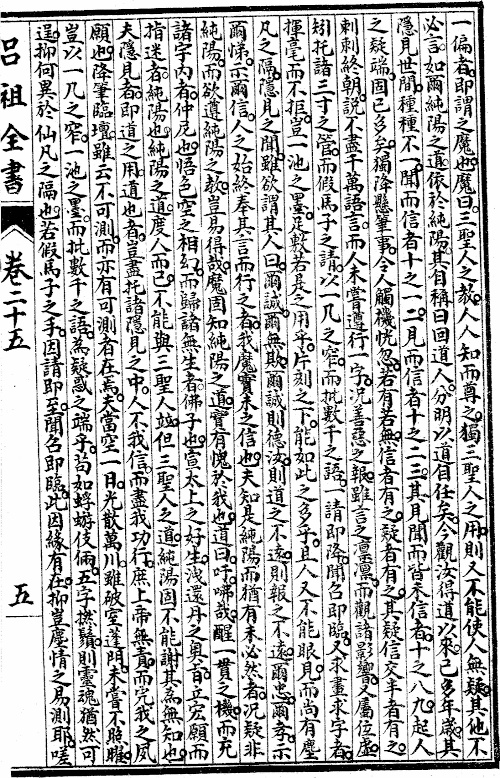 一偏者即謂之魔也魔曰三聖人之教人人知而尊之獨三聖人之用則又不能使人無疑其他不
必言如爾純陽之遺依於純陽其自稱曰回道人分明以道自任矣今觀汝得道以來已多年歲其
隱見世間種種不一聞而信者十之一二見而信者十之二三其見聞而皆未信者十之八九起人
之疑端固已多矣獨降鸞筆事令人觸機恍忽若有若無信者有之疑者有之其疑信交半者有之
刺刺終朝說不盡千萬語言而人未嘗遵行一字况善惡之報雖言之凛凛而觀諸影響又屬位虛
矧托諸三寸之管而假馬子之請以一几之窄而批數千之語一請即降聞名即臨又求畫求字者
揮毫而不拒豈一池之墨足數若是之用乎片刻之下能如此之多乎且人又不能眼見而尚有塵
凡之隔隱見之間雖欲謂其人曰爾誠爾無欺爾誠則德汝則道之不遠則報之不遠爾忠爾孝示
爾悌示爾信人之始終奉其言而行之者我魔實未之信也夫知是純陽而猶有未必然者况疑非
純陽而欲遵純陽之教豈易得哉魔固知純陽之道實有愧於我也道曰吁嘻哉醒一貫之機而充
諸宇內者仲尼也悟色空之相幻而歸諸無生者佛子也宣太上之好生淺還丹之奥旨立宏願而
指迷者純陽也純陽之道度人而已不能與三聖人並但三聖人之道純陽固不能謝其為無知也
夫隱見者即道之用道也者豈盡托諸隱見之中人不我信而盡我功行庶上帝無責而完我之夙
願也降筆臨壇雖云不可測而亦有可測者在焉夫當空一日光散萬川雖破室蓬門未嘗不照曜
豈以一几之窄一池之墨而批數千之語為疑惑之端乎苟如蜉蝣伎倆五字撚鬚則靈魂猶然可
逞抑何異於仙凡之隔也若假馬子之手因請即至聞名即臨此因緣有在抑豈塵情之易測耶嗟
呂祖全書
卷二十五
五